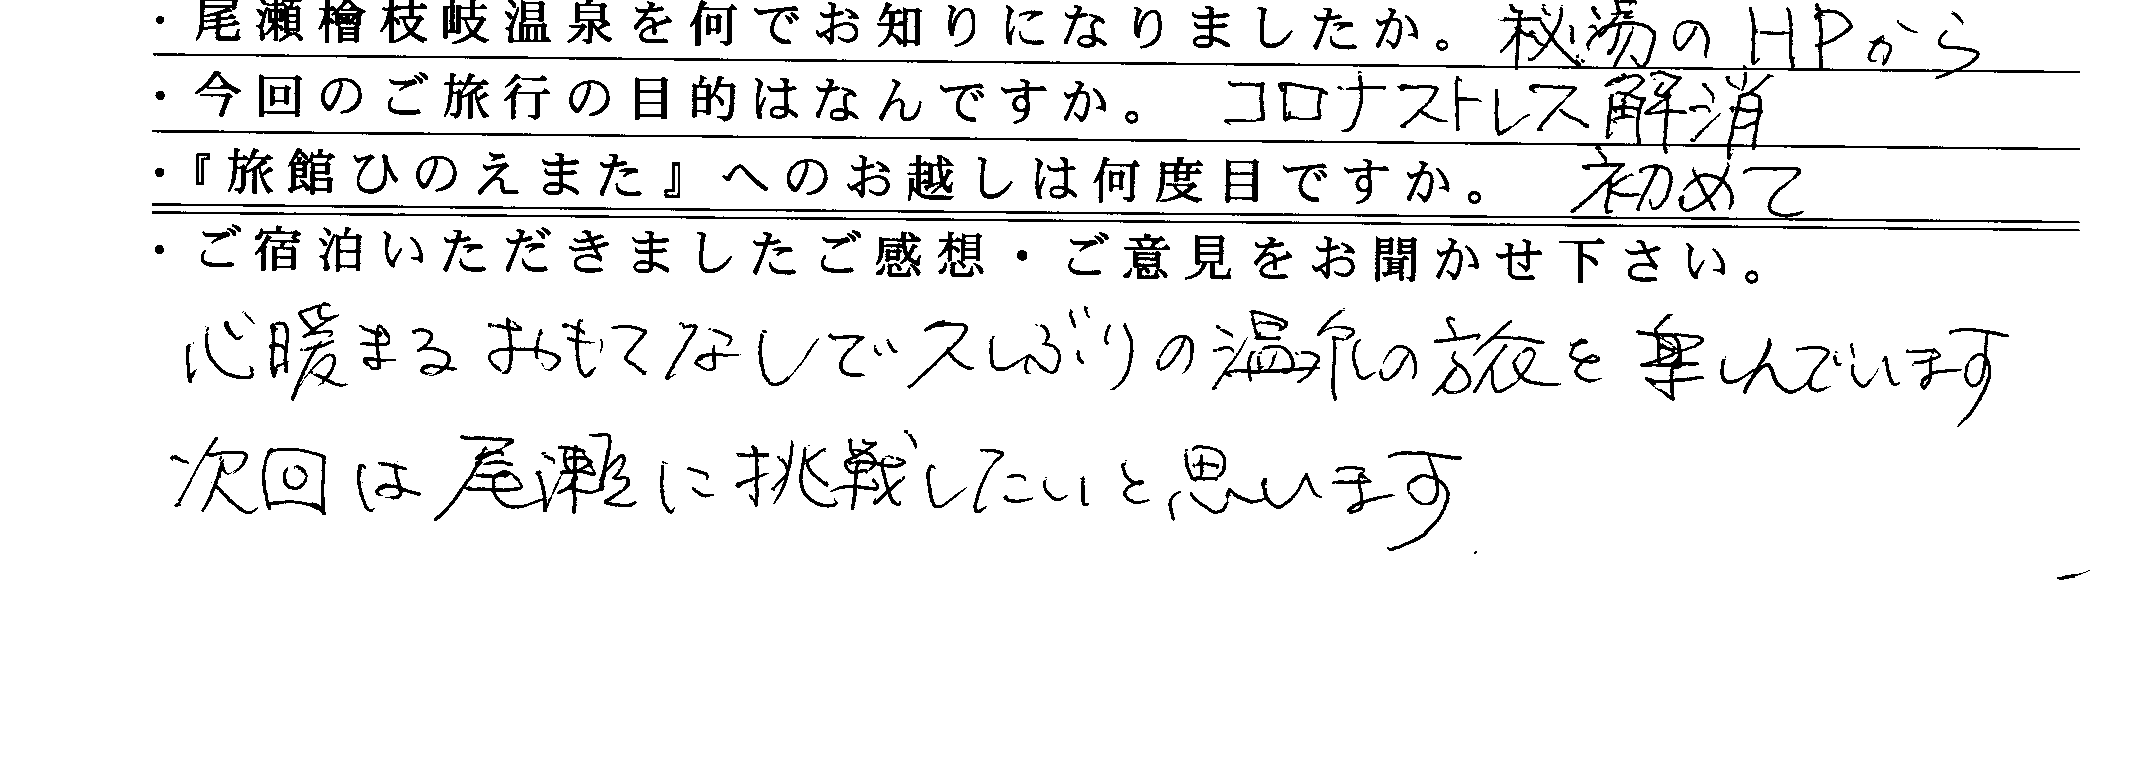 ・尾瀬檜枝岐温泉を何でお知りになりましたか。 秘湯のHPから
・今回のご旅行の目的はなんですか。 コロナストレス解消
・『旅館ひのえまた』へのお越しは何度目ですか。 初めて
・ご宿泊いただきましたご感想・ご意見をお聞かせ下さい。
心暖まるおもてなしで久しぶりの温泉の旅を楽しんでいます
次回は尾瀬に挑戦したいと思います